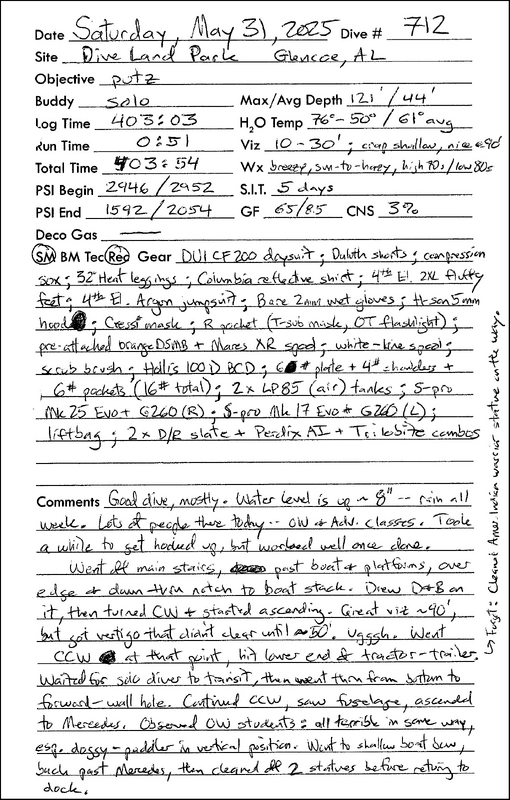 Date Saturday, May 31, 2025 Dive # 712
Site Dive Land Park Glencoe, AL
Objective putz
Buddy solo Max/Avg Depth 121' / 44'
Log Time 403:03 H2O Temp 76°-50° / 61° avg
Run Time 0:51 Viz 10-30'; crap shallow, nice @90'
Total Time 403:54 Wx breezy, sun-to-hazy, high 70s/low 80s
PSI Begin 2946 / 2952 S.I.T. 5 days
PSI End 1592 / 2054 GF 65/85 CNS 3%
Deco Gas —
SM BM Tec Rec Gear DUI CF200 drysuit; Duluth shorts; compression
sox; 32° Heat leggings; Columbia reflective shirt; 4th El. 2XL fluffy
feet; 4th El. Argon jumpsuit; Bare 2mm wet gloves; H-son 5mm
hood; Cressi mask; R pocket (T-sub mask, OT flashlight);
pre-attached orange DSMB + Mares XR spool; white-line spool;
scrub brush; Hollis 100D BCD; 6# plate + 4# shoulders +
6# pockets (16# total); 2x LP85 (air) tanks; S-pro
Mk 25 Evo + G260 (R); S-pro Mk 17 Evo + G260 (L);
liftbag; 2x D/R slate + Perdix AI + Trilobite combos
Comments Good dive, mostly. Water level is up ~8" -- rain all
week. Lots of people there today -- OW + Adv. classes. Took
a while to get hooked up, but worked well once done.
Went off main stairs, past boat + platforms, over
edge + down thru notch to boat stack. Drew D+B on
it, then turned CW + started ascending. Great viz ~40',
but got vertigo that didn't clear until ~50'. Ugggh. Went
CCW at that point, hit lower end of tractor-trailer.
Waited for solo diver to transit, then went thru from bottom to
forward-wall hole. Continued CCW, saw fuselage, ascended
to Mercedes. Observed OW students: all terrible in some way,
esp. doggy-paddler in vertical position. Went to shallow boat bow,
back past Mercedes, then cleaned off 2 statues before retying to
dock.
↳ Forgot: Cleaned Amer. Indian warrior statue on the way.